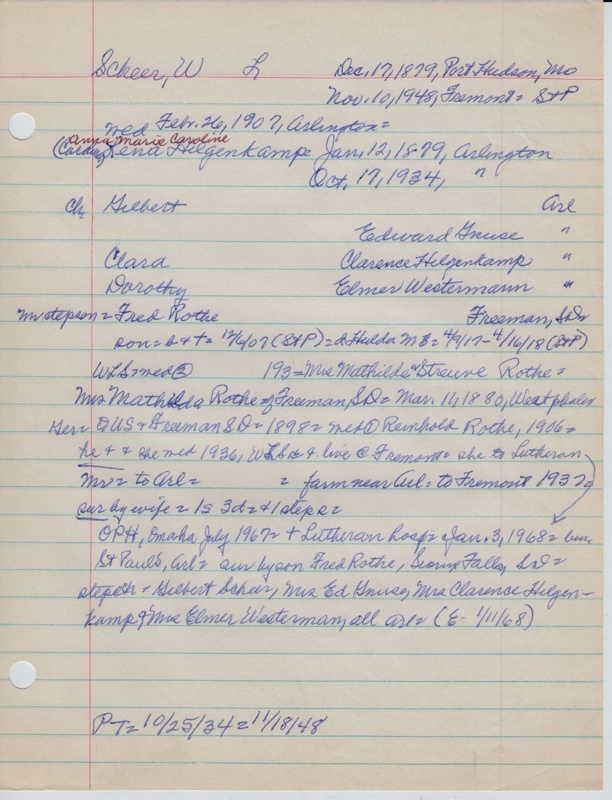 Scheer, W L Dec. 17, 1879, Port Hudson, Mo
Nov. 10, 1948, Fremont = St P
wed Feb. 26, 1907, Arlington =
Anna Marie Caroline
Lena Hilgenkamp = Jan. 12, 1879, Arlington
Oct, 17, 1934, "
ch Gilbert Arl
Edward Gnuse "
Clara Clarence Hilgenkamp "
Dorothy Elmer Westermann "
stepson = Fred Rothe Freeman, SD =
son = b & + = 12/6/07 (St P) = d. Hulda M E = 4/9/17 - 4/16/18 (St P)
WLS = wed @ 193 = Mrs Mathilda Streuve Rothe =
Mrs Mathilda Rothe of Freeman, SD = Mar. 11, 1880, Westphalen
Ger = @ US & Freeman SD = 1898 = wed @ Reinhold Rothe, 1906 =
he + & she wed 1936, WLS & live @ Fremont = she to Lutheran
Mv = to Arl = = farm near Arl = to Fremont 1937 =
sur by wife = 1s 3d = & 1 steps =
OPH, Omaha July 1967 = + Lutheran hosp = Jan. 3, 1968 = bur,
St Paul's, Arl = sur by son Fred Rothe, Falls, SD =
stepch = Gilbert Scheer, Mrs Ed Gnuse, Mrs Clarence Hilgen-
kamp & Mrs Elmer Westerman, all Arl = (E - 1/11/68)
PT = 10/25/34 = 11/18/48